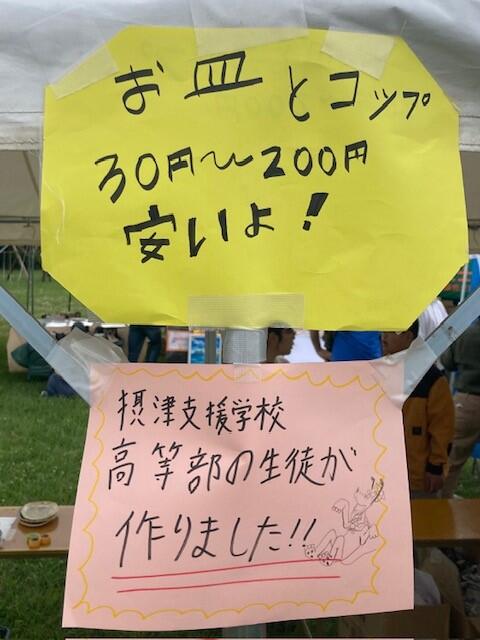 お皿とコップ
30円〜200円
安いよ!
摂津支援学校
高等部の生徒が
作りました!!